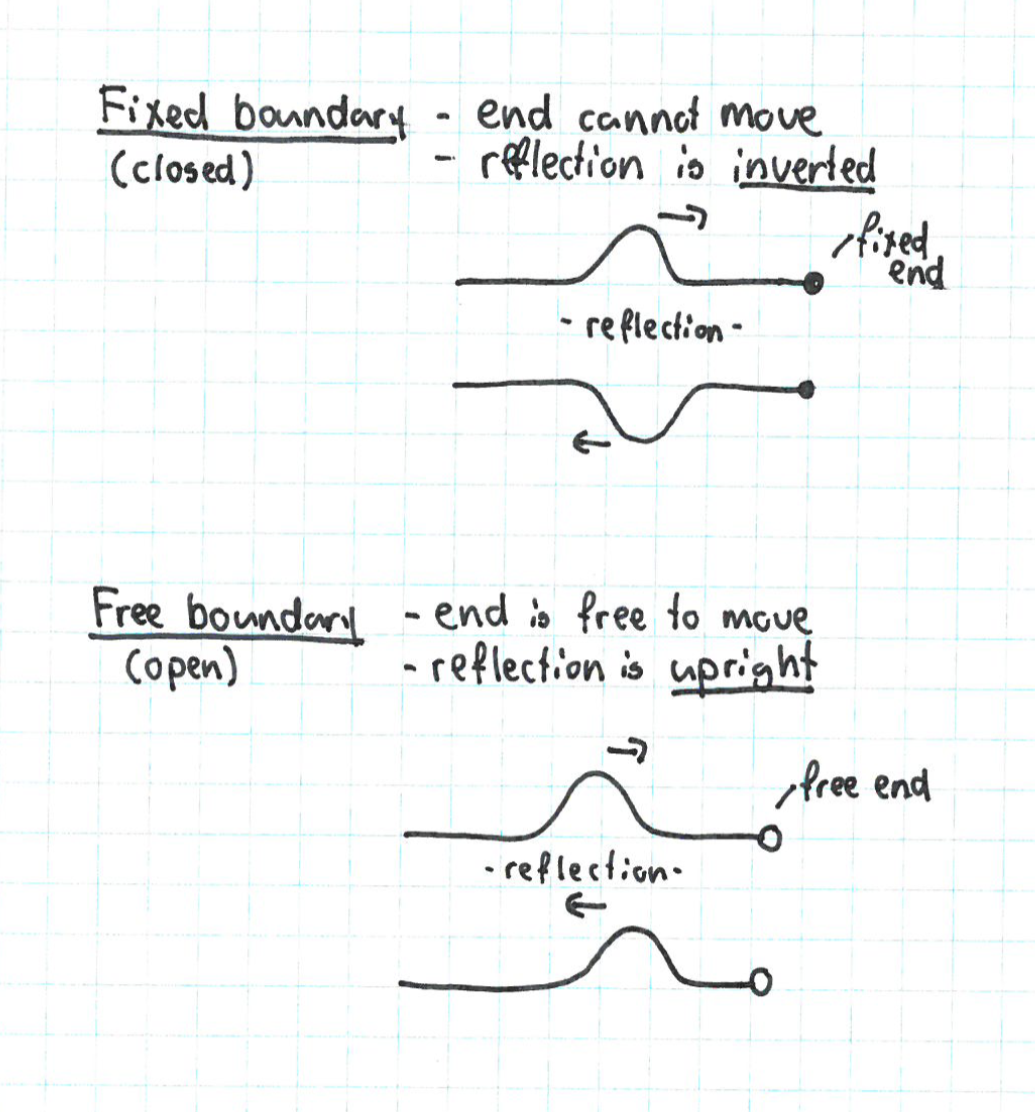 Fixed boundary - end cannot move
(closed) - reflection is inverted
fixed
end
- reflection -
Free boundary - end is free to move
(open) - reflection is upright
free end
- reflection -